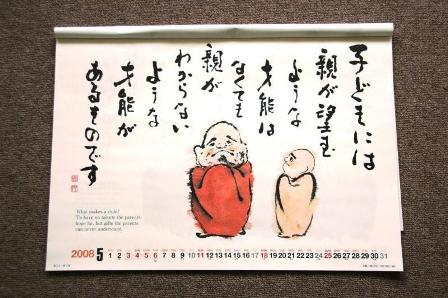 子どもには
親が望む
ような
才能は
なくても
親が
わからない
ような
才能が
あるものです
What makes a child?
To have no talents the parents
hope for, but gifts the parents
can never understand.
2008 5 1 2 3 4 5 6 7 8 9 10 11 12 13 14 15 16 17 18 19 20 21 22 23 24 25 26 27 28 29 30 31